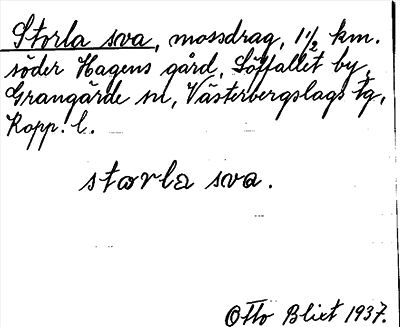 Storla sva, mossdrag, 1 1/2 km.
söder Hagens gård, Löffallet by,
Grangärde sn, Västerbergslags tg,
Kopp. l.
storla sva.
Otto Blixt 1937.